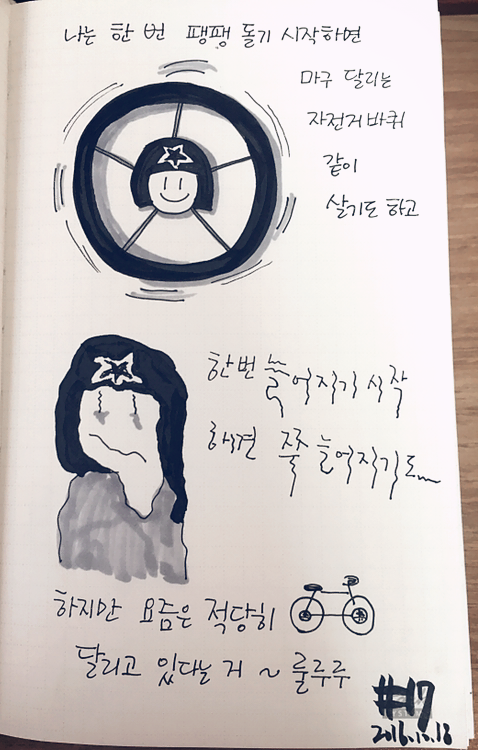 나는 한 번 팽팽 돌기 시작하면
마구 달리는
자전거바퀴
같이
살기도 하고
한번 늘어지기 시작
하면 쭉 늘어지기도~
하지만 요즘은 적당히
달리고 있다는 거 ~ 룰루루
#17
2016.10.18